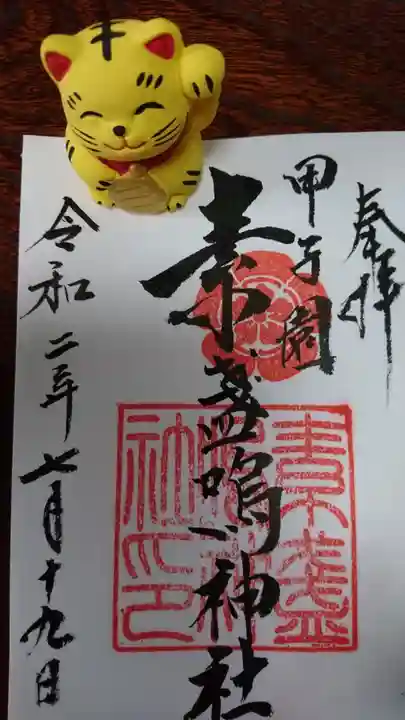 奉拝
甲子園
素盞嗚神社
令和二年七月十九日
素盞
嗚神
社印